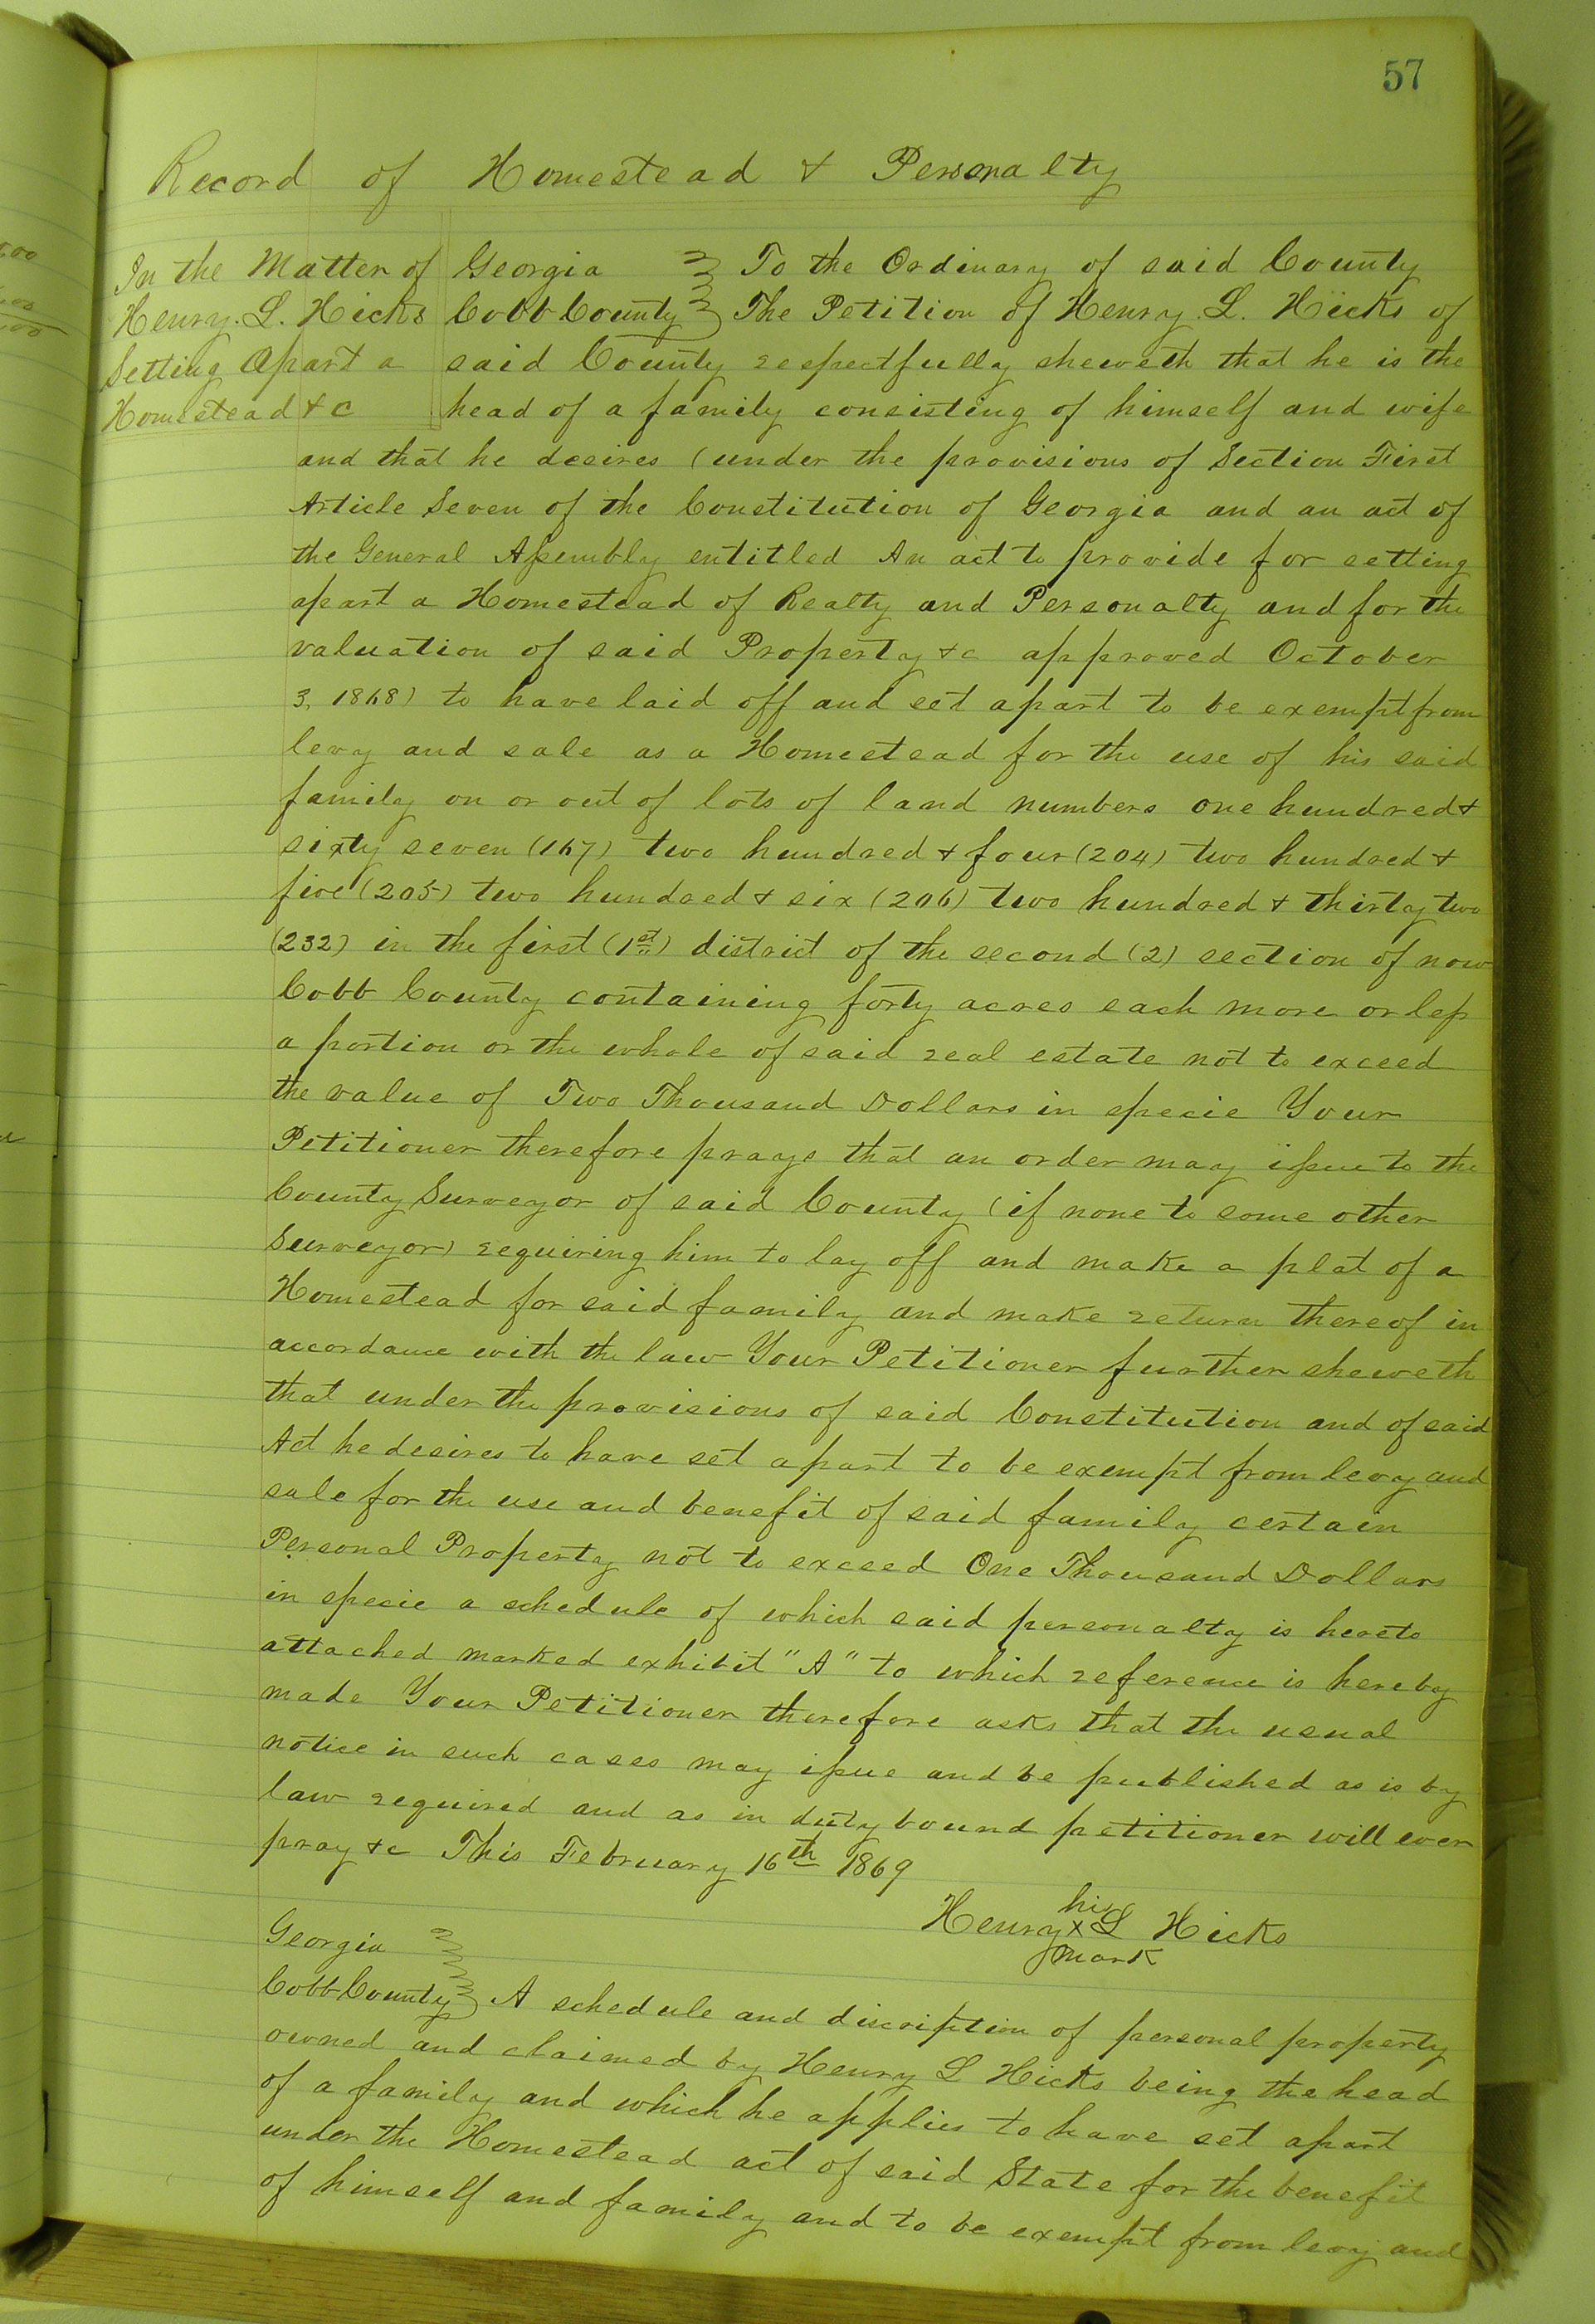 57
Record of Homestead & Personalty
In the Matter of
Henry. L. Hicks
Setting Apart a
Homestead & c
Georgia To the Ordinary of said County
Cobb County The Petition of Henry. L. Hicks of
said County respectfully sheweth that he is the
head of a family consisting of himself and wife
and that he desires (under the provisions of Section First
Article Seven of the Constitution of Georgia and an act of
the General Assembly entitled An act to provide for setting
apart a Homestead of Realty and Personalty and for the
valuation of said Property &c approved October
3, 1868) to have laid off and set apart to be exempt from
levy and sale as a Homestead for the use of his said
family on or out of lots of land numbers one hundred &
sixty seven (167) two hundred & four (204) two hundred &
five (205) two hundred & six (206) two hundred & thirty two
(232) in the first (1st) district of the second (2) section of now
Cobb County containing forty acres each more or less
a portion or the whole of said real estate not to exceed
the value of Two Thousand Dollars in specie Your
Petitioner therefore prays that an order may issue to the
County Surveyor of said County (if none to some other
Surveyor) requiring him to lay off and make a plat of a
Homestead for said family and make return thereof in
accordance with the law Your Petitioner further sheweth
that under the provisions of said Constitution and of said
Act he desires to have set apart to be exempt from levy and
sale for the use and benefit of said family certain
Personal Property not to exceed One Thousand Dollars
in specie a schedule of which said personalty is hereto
attached marked exhibit "A" to which reference is hereby
made Your Petitioner therefore asks that the usual
notice in such cases may issue and be published as is by
law required and as in duty bound petitioner will ever
pray &c This February 16th 1869
his
Henry x L Hicks
mark
Georgia
Cobb County A schedule and discription of personal property
owned and claimed by Henry L Hicks being the head
of a family and which he applies to have set apart
under the Homestead act of said State for the benefit
of himself and family and to be exempt from levy and